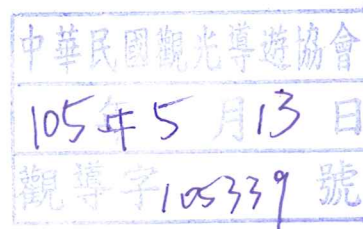 中華民國觀光導遊協會
105年5月13日
觀導字105339號